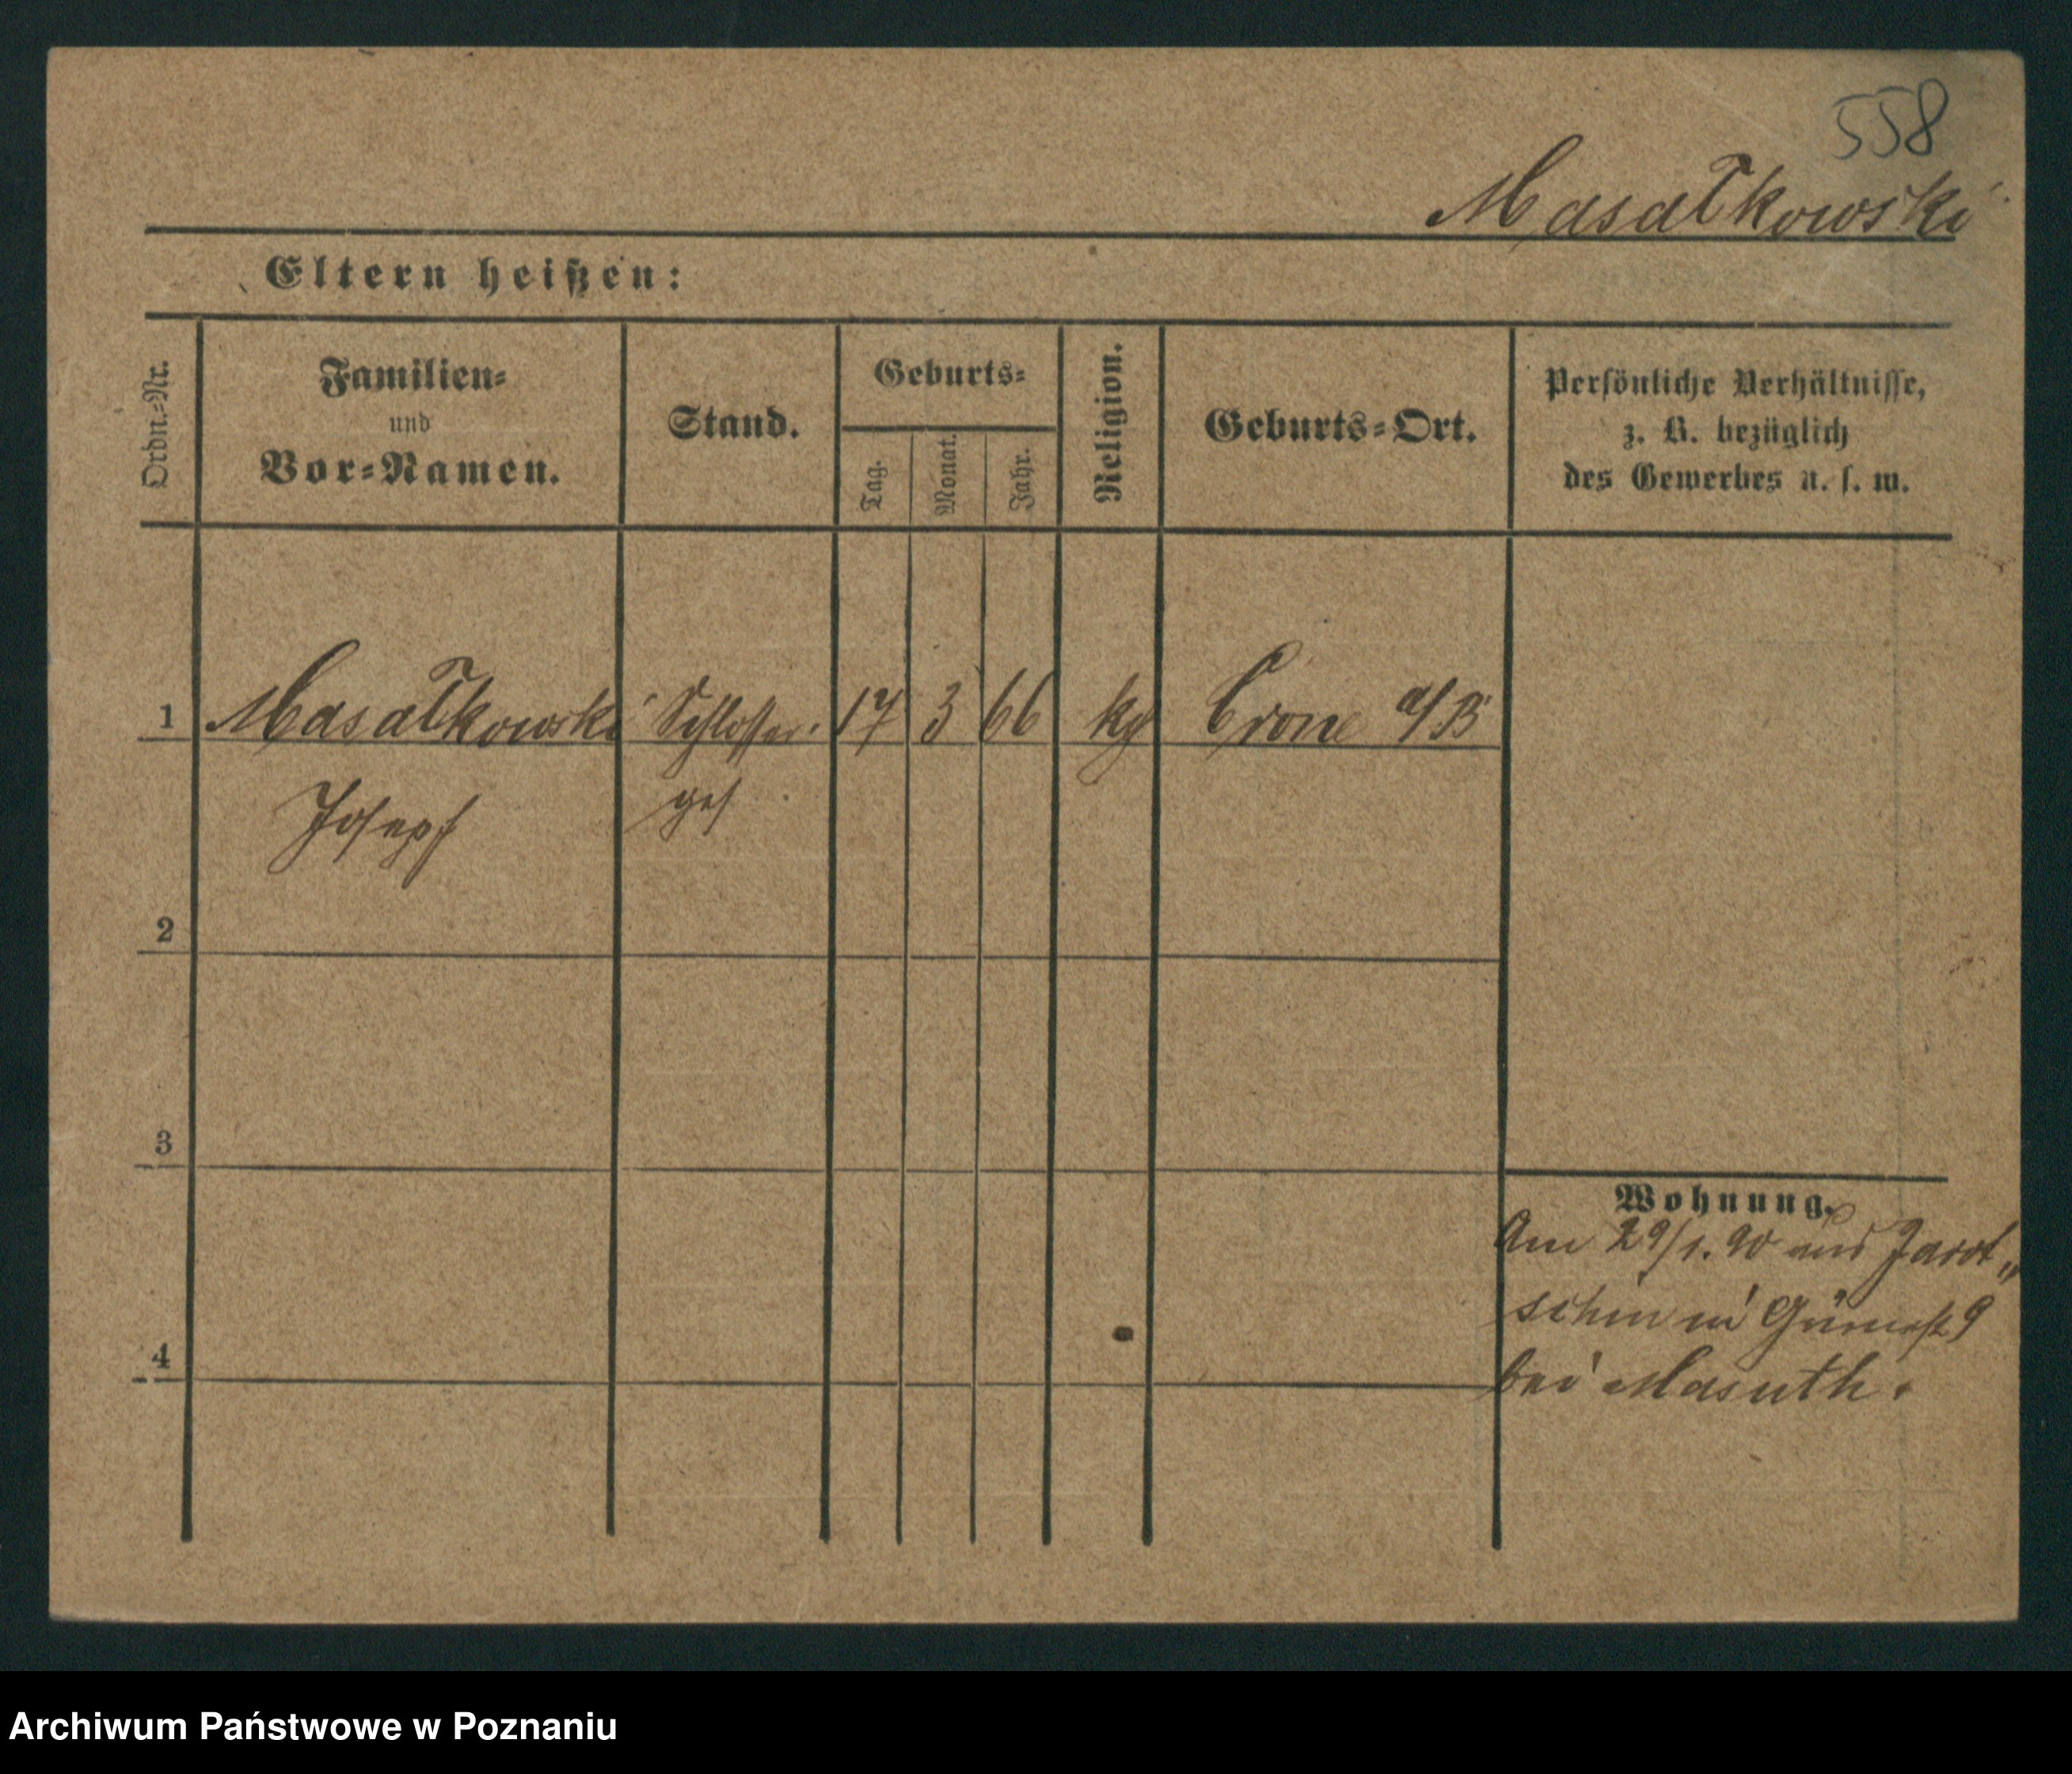 558
Masałkowski
Eltern heißen:
Ordn.-Nr.
Familien-
und
Vor-Namen.
Stand.
Geburts-
Tag.
Monat.
Jahr.
Religion.
Geburts-Ort.
Persönliche Verhältnisse,
z. B. bezüglich
des Gewerbes u. s. w.
1 Masałkowski Schlosser 17 3 66 kg Crone a/B
Joseph ges
2
3
4
Wohnung.
Am 29/1. 90 aus Jarot„
schin in 9
bei Masuth.
Archiwum Państwowe w Poznaniu